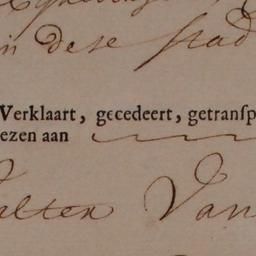 in dese stad
Verklaart, gecedeert, getranſp
ezen aan
alten Van